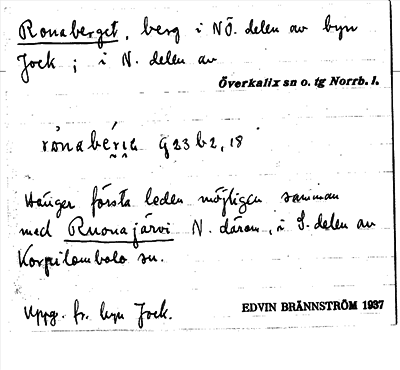 Ronaberget, berg i NÖ. delen av byn
Jock; i N. delen av
Överkalix sn o. tg Norrb. l.
G 23 b 2, 18
Hänger första leden möjligen samman
med Ruonajärvi N. därom, i S. delen av
Korpilombolo sn.
Uppg. fr. byn Jock.
EDVIN BRÄNNSTRÖM 1937